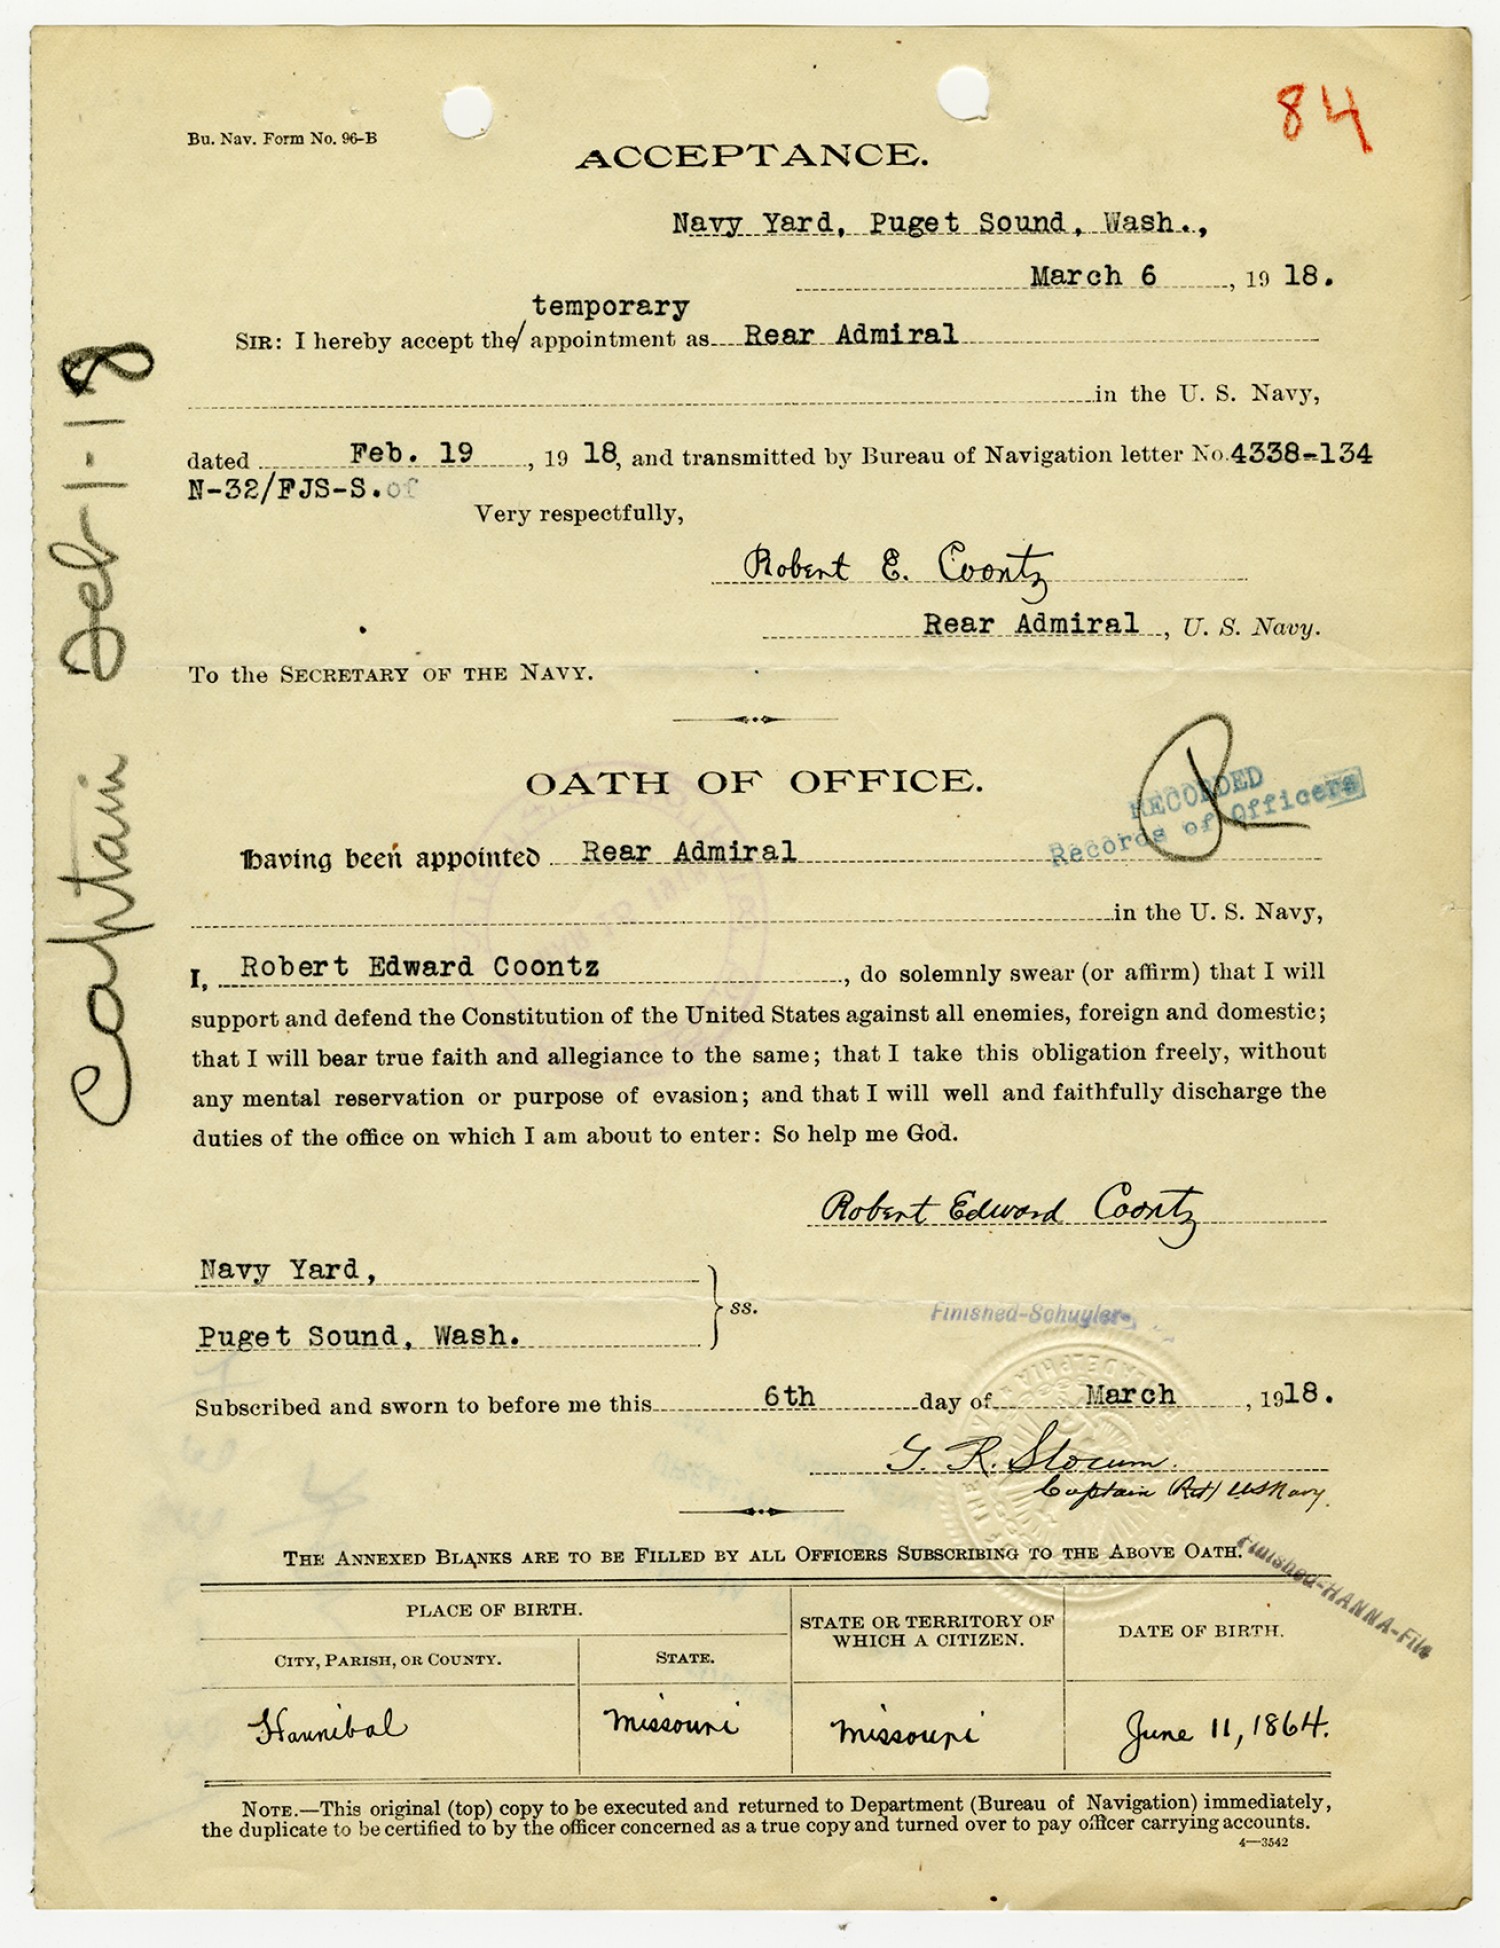 84
Bu. Nav. Form No. 96-B
ACCEPTANCE.
Navy Yard, Puget Sound, Wash.,
March 6, 1918.
temporary
SIR: I hereby accept the/ appointment as Rear Admiral
in the U. S. Navy,
dated Feb. 19, 1918, and transmitted by Bureau of Navigation letter No. 4338-134
N-32/FJS-S. of
Very respectfully,
Robert E. Coontz
Rear Admiral, U. S. Navy.
To the SECRETARY OF THE NAVY.
Captain Feb-1-18
OATH OF OFFICE.
R
RECORDED
Records of Officers
Having been appointed Rear Admiral
in the U. S. Navy,
I, Robert Edward Coontz, do solemnly swear (or affirm) that I will
support and defend the Constitution of the United States against all enemies, foreign and domestic;
that I will bear true faith and allegiance to the same; that I take this obligation freely, without
any mental reservation or purpose of evasion; and that I will well and faithfully discharge the
duties of the office on which I am about to enter: So help me God.
Robert Edward Coontz
Navy Yard,
Puget Sound, Wash.
ss.
Finished-Schuyler-
Subscribed and sworn to before me this 6th day of March, 1918.
G. R. Slocum.
Captain (Ret) US Navy.
THE ANNEXED BLANKS ARE TO BE FILLED BY ALL OFFICERS SUBSCRIBING TO THE ABOVE OATH.
Finished-HANNA-File
PLACE OF BIRTH.
STATE OR TERRITORY OF
WHICH A CITIZEN.
DATE OF BIRTH.
CITY, PARISH, OR COUNTY.
STATE.
Hannibal
Missouri
Missouri
June 11, 1864.
NOTE.—This original (top) copy to be executed and returned to Department (Bureau of Navigation) immediately,
the duplicate to be certified to by the officer concerned as a true copy and turned over to pay officer carrying accounts.
4—3542